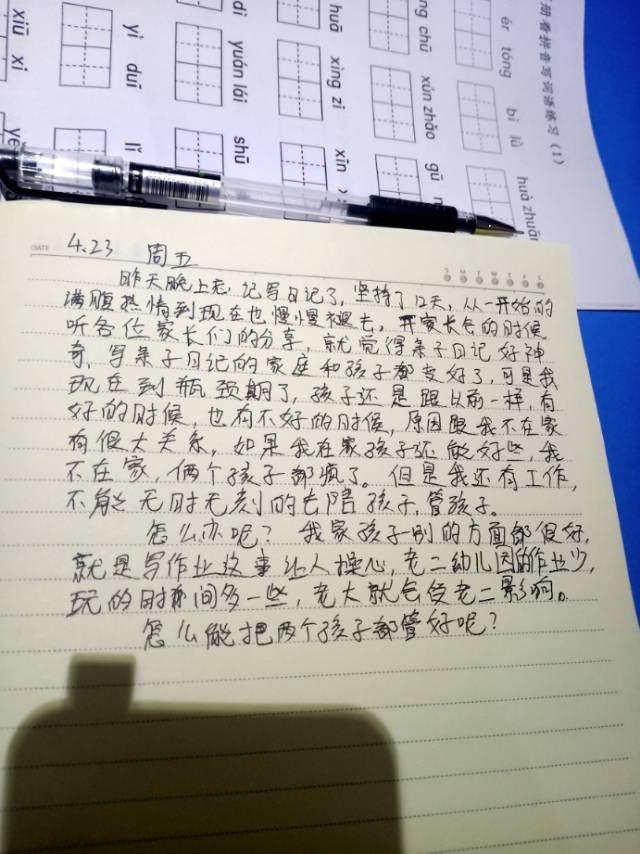 册看拼音写词语练习（1）
ér tóng
bí
huà zhuān
ng chū
xún zhǎo
gū
huā
xíng zi
xīn
di
yuán lái
shū
yì
duī
lǐ
xiū
xi
yě
DATE
4.23 周五
S M T W T F S
昨天晚上忘记写日记了，坚持了12天，从一开始的
满腹热情到现在也慢慢褪去，开家长会的时候
听各位家长们的分享，就觉得亲子日记好神
奇，写亲子日记的家庭和孩子都变好了，可是我
现在到瓶颈期了，孩子还是跟以前一样，有
好的时候，也有不好的时候，原因跟我不在家
有很大关系，如果我在家孩子还能好些，我
不在家，俩个孩子都疯了。但是我还有工作，
不能无时无刻的去陪孩子，管孩子。
怎么办呢？我家孩子别的方面都很好，
就是写作业这事让人操心，老二幼儿园的作业少，
玩的时间多一些，老大就会受老二影响。
怎么能把两个孩子都管好呢？